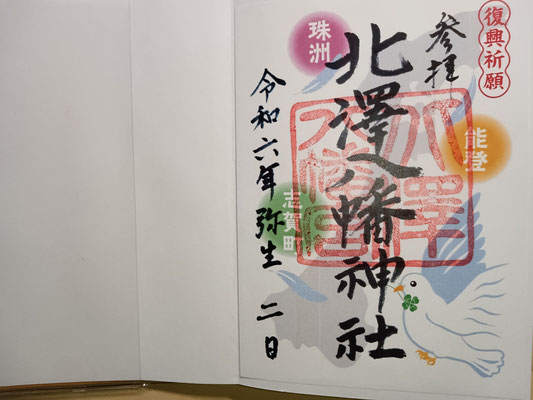 復興祈願
参拝
能登
北澤八幡神社
北澤八幡宮
珠洲
志賀町
令和六年弥生二日